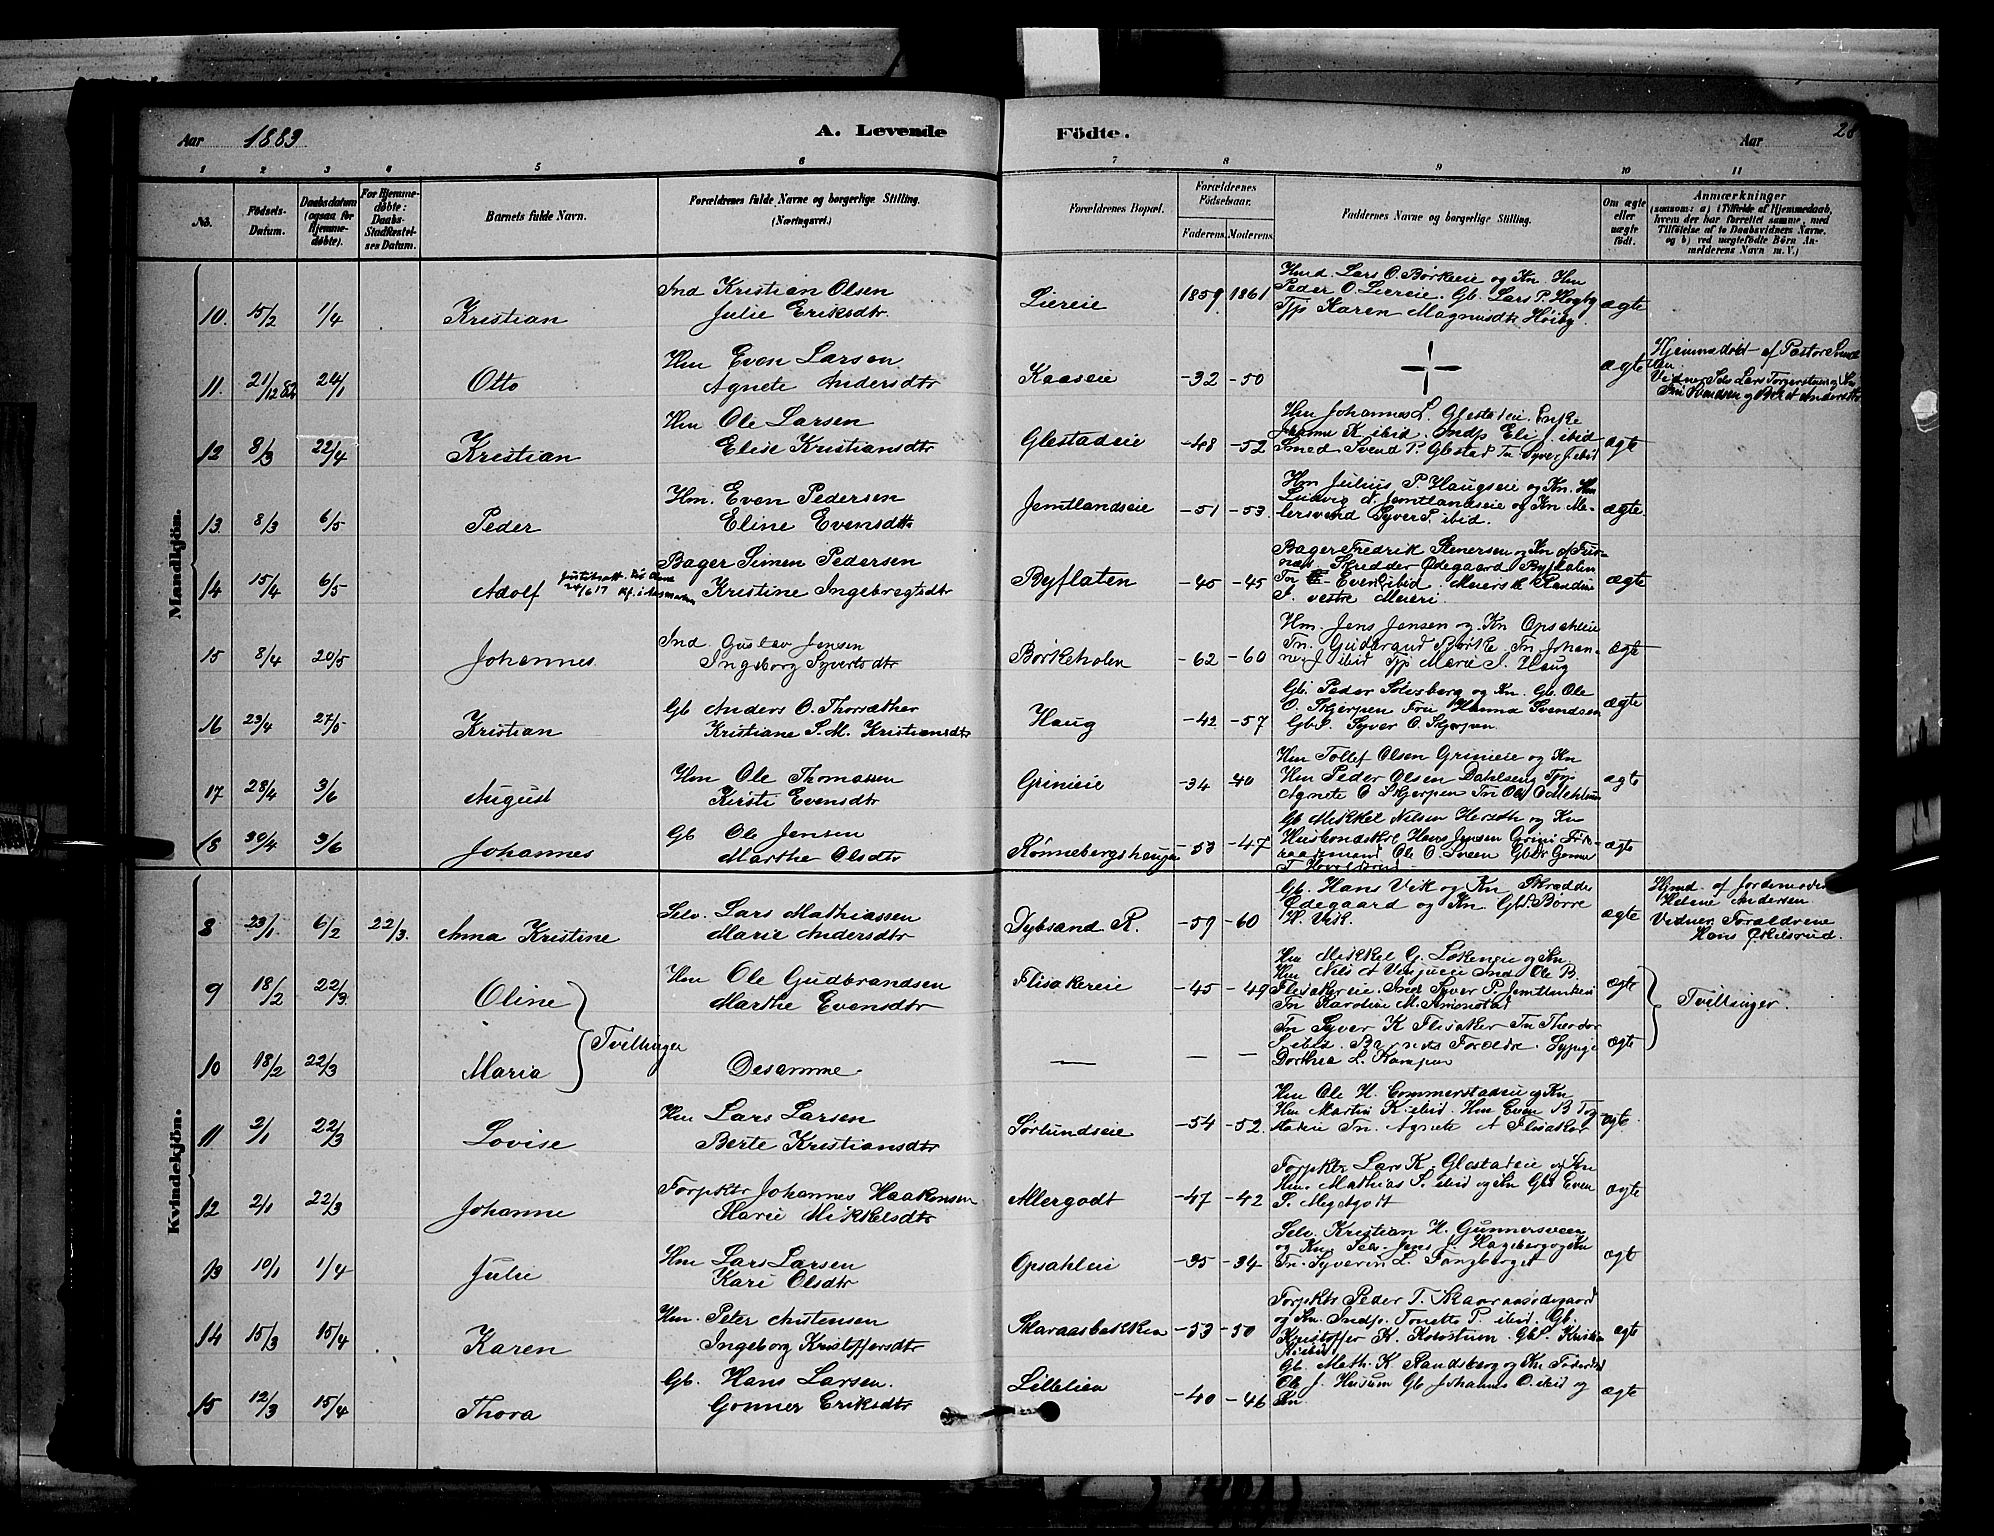 Aar 1883 A. Levende Födte. Aar 28
1 2 3 4 5 6 7 8 9 10 11
No. Födsels-Datum. Daabsdatum (ogsaa for Hjemmedöbte). For Hjemmedöbte: Daabs-Stadfæstelses Datum. Barnets fulde Navn. Forældrenes fulde Navne og borgerlige Stilling. (Næringsvei.) Forældrenes Bopæl. Forældrenes Födselsaar. Faderens. Moderens. Faddernes Navne og borgerlige Stilling. Om ægte eller uægte födt. Anmærkninger (saasom: a) i Tilfælde af Hjemmedaab, hvem der har forrettet samme, med Tilföielse af to Daabsvidners Navne, og b) ved uægtefödte Börn Anmelderens Navn m. V.)
Mandkjön.
10. 15/2 1/4 Kristian Ind Kristian Olsen Julie Eriksdtr. Liereie 1859 1861 Hmd. Lars O. Børkeeie og Kn. Hm
Peder O. Liereie. Gb. Lars P. Høgby
Tjp Karen Magnusdtr Høiby. ægte
11. 21/12 82 24/1 Otto Hm Even Larsen Agnete Andersdtr Kaaseie -32 -50 ægte Hjemmedøbt af Pastor
12 8/3 22/4 Kristian Hm Ole Larsen Elise Kristiansdtr Glestadeie -48 -52 Hm Johannes L. Glestadeie. Enke
Johanne K ibid. Indp Eli J ibid
Smed Svend P. Glestad Tn Syver J. ibid ægte
13. 8/3 6/5 Peder Hm. Even Pedersen Eline Evensdtr Jemtlandseie -51 -53. Hm Julius P. Haugseie og Kn. Hm
Ludvig N. Jemtlandseie og Kn Ma-
lersvend Syver P. ibid. ægte.
14 15/4 6/5 Adolf Bager Simen Pedersen Kristine Ingebregtsdtr Byflaten -45 -45 Bager Fredrik Stenersen og Kn
Skredder Ødegaard Byflaten
Tn Even ibid.
S. vestre Meieri. ægte
15 8/4 20/5 Johannes. Ind Gustav Jensen Ingeborg Syvertsdtr Børkeholen -62 -60 Hm. Jens Jensen og Kn Opsahleie
Tn. Gudbrand Børke. Tn Johan-
nes J ibid Tjp Marie S. Haug ægte
16 23/4 27/5 Kristian Gb Anders O. Thorsæther Kristiane S. M. Kristiansdtr Haug -42 -57 Gb. Peder Sølesberg og Kn. Gb. Ole
O. Skjerpen Fru Hanna Svendsen
GbS. Syver O. Skjerpen. ægte
17 28/4 3/6 August Hm Ole Thomassen Kirsti Evensdtr Grinieie -34 -40 Hm Tollef Olsen Grinieie og Kn
Hm Peder Olsen Dahlseng Tjp
Agnete O Skjerpen Tn Ole ægte
18 30/4 3/6 Johannes Gb Ole Jensen Marthe Olsdtr Rønnebergshaugen -53 -47 Gb Mikkel Nilsen Hersth og Kn
Hans Jensen Grini
Ole O. Sveen ægte
Kvindekjön.
8 23/1 6/2 22/3. Anna Kristine Selv. Lars Mathiassen Marie Andersdtr Dybsand R. -59 -60 Gb. Hans Vik og Kn Skrædder
Ødegaard og Kn. GbS. Børre
H. Vik. ægte Hjmd. af Jordemoder
Helene Andersen
Vidner Forældrene
Hans Økelsrud.
9 18/2 22/3. Oline Hm Ole Gudbrandsen Marthe Evensdtr Flisakereie -45 -49 Hm Mikkel G. Løkeneie og Kn.
Hm Nils A Vinjueie Ind Ole B.
Flisakereie. Ind Syver P. Jemtlandseie
Tn Karoline M. ægte Tvillinger.
10 18/2 22/3 Maria Tvillinger Desamme. — — — Tn Syver K Flisaker Tn Theodor
S ibid. Barnets Forældre. Sypige
Dorthea L. Kampen ægte
11 2/1 22/3 Lovise Hm Lars Larsen Berte Kristiansdtr Sørlundseie -54 -52. Hm Ole H. Commerstadeie og Kn
Hm Martin K ibid. Hm Even B
Tn. Agnete A Flisaker ægte.
12 2/1 22/3 Johanne Forpktr Johannes Haakensen Marie Mikkelsdtr Allergodt -47 -42 Forpktr Lars K. Glestadeie og Kn
Hm. Mathias S. ibid og Kn GbS Even
S. Megetgodt ægte
13 10/1 1/4 Julie Hm Lars Larsen Kari Olsdtr Opsahleie -35 -34 Selv. Kristian H. Gunnersveen
og Kn. Selv. Jens J. Hageberg og Kn
Tn. Syverin L. Tangberget ægte
14 15/3 15/4 Karen Hm. Peter Austensen Ingeborg Kristoffersdtr Skaraasbakken -53 -50 Forpktr Peder T. Skaraasødegaard
og Kn. Indp. Tonette P. ibid. Gb.
Kristoffer K. Kolostuen. GbS. Kristian
K ibid ægte
15 12/3 15/4 Thora Gb. Hans Larsen. Gonner Eriksdtr Lillelien -40 -46 Gb. Math. K Randsberg og Kn
Ole J. Husum Gb Johannes O. ibid og
Kn. ægte